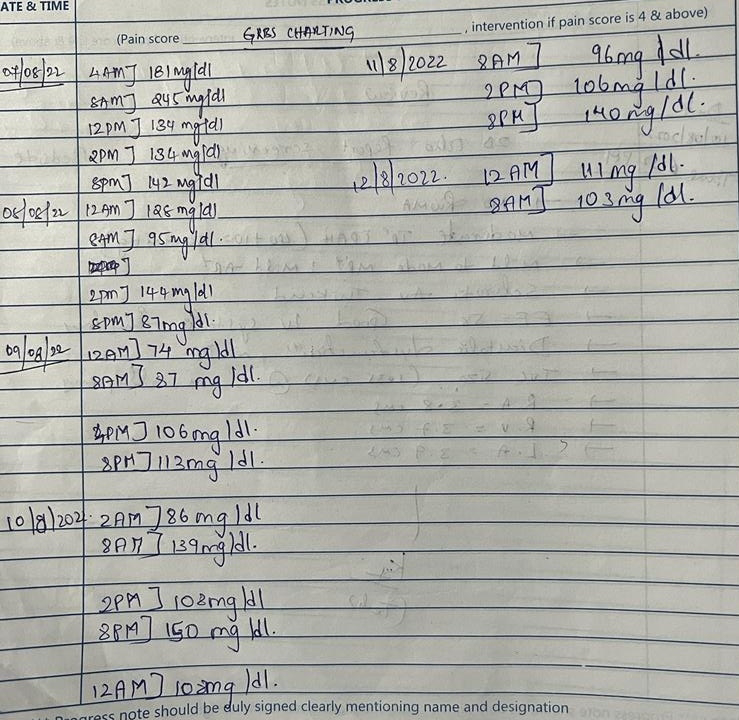 ATE & TIME
(Pain score GRBS CHARTING , intervention if pain score is 4 & above)
07/08/22 4AM] 181mg/dl
8AM] 245 mg/dl
12PM] 134 mg/dl
2PM] 134 mg/dl
8PM] 142 mg/dl
08/08/22 12AM] 128 mg/dl
8AM] 95mg/dl.
2pm] 144mg/dl
8PM] 87mg/dl.
09/08/22 12AM] 74 mg/dl
8AM] 87 mg/dl.
2PM] 106mg/dl.
8PM] 113mg/dl.
10/8/202 2AM] 86 mg/dl
8AM] 139mg/dl.
2PM] 108mg/dl
8PM] 150 mg/dl.
12AM] 102mg/dl.
11/8/2022 8AM] 96mg/dl.
2PM] 106mg/dl.
8PM] 140mg/dl.
12/8/2022. 12AM] 111mg/dl.
8AM] 103mg/dl.
Progress note should be duly signed clearly mentioning name and designation